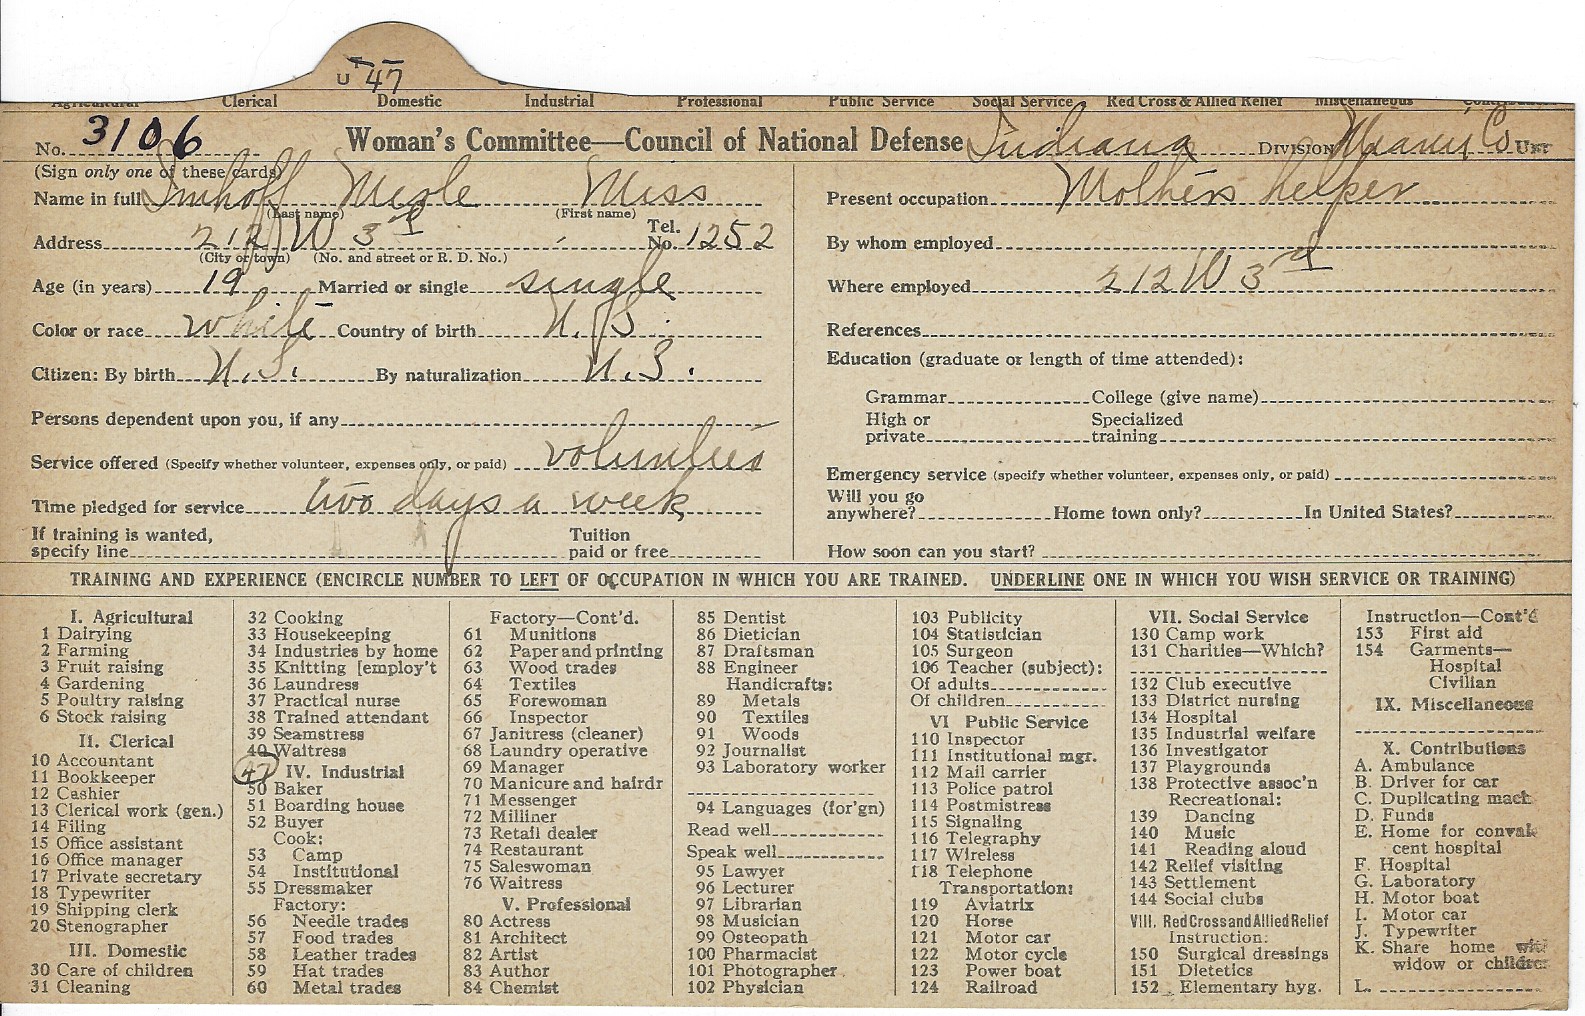 U 47
Agricultural Clerical Domestic Industrial Professional Public Service Social Service Red Cross & Allied Relief Miscellaneous
No. 3106 Woman's Committee—Council of National Defense Indiana DIVISION Miami Co UNIT
(Sign only one of these cards)
Name in full Imhoff Merle Miss
(Last name) (First name)
Address 212 W 3rd Tel. No. 1252
(City or town) (No. and street or R. D. No.)
Age (in years) 19 Married or single single
Color or race white Country of birth U. S.
Citizen: By birth U. S. By naturalization U. S.
Persons dependent upon you, if any
Service offered (Specify whether volunteer, expenses only, or paid) volunteer
Time pledged for service two days a week
If training is wanted, specify line Tuition paid or free
Present occupation Mothers helper
By whom employed
Where employed 212 W 3rd
References
Education (graduate or length of time attended):
Grammar College (give name)
High or private Specialized training
Emergency service (specify whether volunteer, expenses only, or paid)
Will you go anywhere? Home town only? In United States?
How soon can you start?
TRAINING AND EXPERIENCE (ENCIRCLE NUMBER TO LEFT OF OCCUPATION IN WHICH YOU ARE TRAINED. UNDERLINE ONE IN WHICH YOU WISH SERVICE OR TRAINING)
I. Agricultural
1 Dairying
2 Farming
3 Fruit raising
4 Gardening
5 Poultry raising
6 Stock raising
II. Clerical
10 Accountant
11 Bookkeeper
12 Cashier
13 Clerical work (gen.)
14 Filing
15 Office assistant
16 Office manager
17 Private secretary
18 Typewriter
19 Shipping clerk
20 Stenographer
III. Domestic
30 Care of children
31 Cleaning
32 Cooking
33 Housekeeping
34 Industries by home
35 Knitting [employ't
36 Laundress
37 Practical nurse
38 Trained attendant
39 Seamstress
40 Waitress
47
IV. Industrial
50 Baker
51 Boarding house
52 Buyer
Cook:
53 Camp
54 Institutional
55 Dressmaker
Factory:
56 Needle trades
57 Food trades
58 Leather trades
59 Hat trades
60 Metal trades
Factory—Cont'd.
61 Munitions
62 Paper and printing
63 Wood trades
64 Textiles
65 Forewoman
66 Inspector
67 Janitress (cleaner)
68 Laundry operative
69 Manager
70 Manicure and hairdr
71 Messenger
72 Milliner
73 Retail dealer
74 Restaurant
75 Saleswoman
76 Waitress
V. Professional
80 Actress
81 Architect
82 Artist
83 Author
84 Chemist
85 Dentist
86 Dietician
87 Draftsman
88 Engineer
Handicrafts:
89 Metals
90 Textiles
91 Woods
92 Journalist
93 Laboratory worker
94 Languages (for'gn)
Read well
Speak well
95 Lawyer
96 Lecturer
97 Librarian
98 Musician
99 Osteopath
100 Pharmacist
101 Photographer
102 Physician
103 Publicity
104 Statistician
105 Surgeon
106 Teacher (subject):
Of adults
Of children
VI Public Service
110 Inspector
111 Institutional mgr.
112 Mail carrier
113 Police patrol
114 Postmistress
115 Signaling
116 Telegraphy
117 Wireless
118 Telephone
Transportation:
119 Aviatrix
120 Horse
121 Motor car
122 Motor cycle
123 Power boat
124 Railroad
VII. Social Service
130 Camp work
131 Charities—Which?
132 Club executive
133 District nursing
134 Hospital
135 Industrial welfare
136 Investigator
137 Playgrounds
138 Protective assoc'n
Recreational:
139 Dancing
140 Music
141 Reading aloud
142 Relief visiting
143 Settlement
144 Social clubs
VIII. Red Cross and Allied Relief
Instruction:
150 Surgical dressings
151 Dietetics
152 Elementary hyg.
Instruction—Cont'd
153 First aid
154 Garments—
Hospital
Civilian
IX. Miscellaneous
X. Contributions
A. Ambulance
B. Driver for car
C. Duplicating mach.
D. Funds
E. Home for convalescent hospital
F. Hospital
G. Laboratory
H. Motor boat
I. Motor car
J. Typewriter
K. Share home with
widow or children
L.